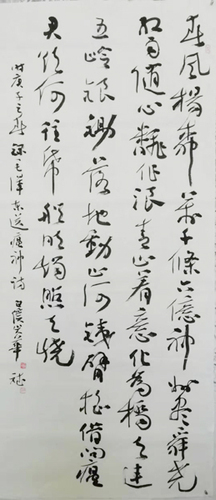 春风杨柳万千条六亿神州尽舜尧
红雨随心翻作浪青山着意化为桥天连
五岭银锄落地動山河铁臂摇借问瘟
君欲何往纸船明烛照天烧
时庚子之春 录毛泽东送瘟神诗